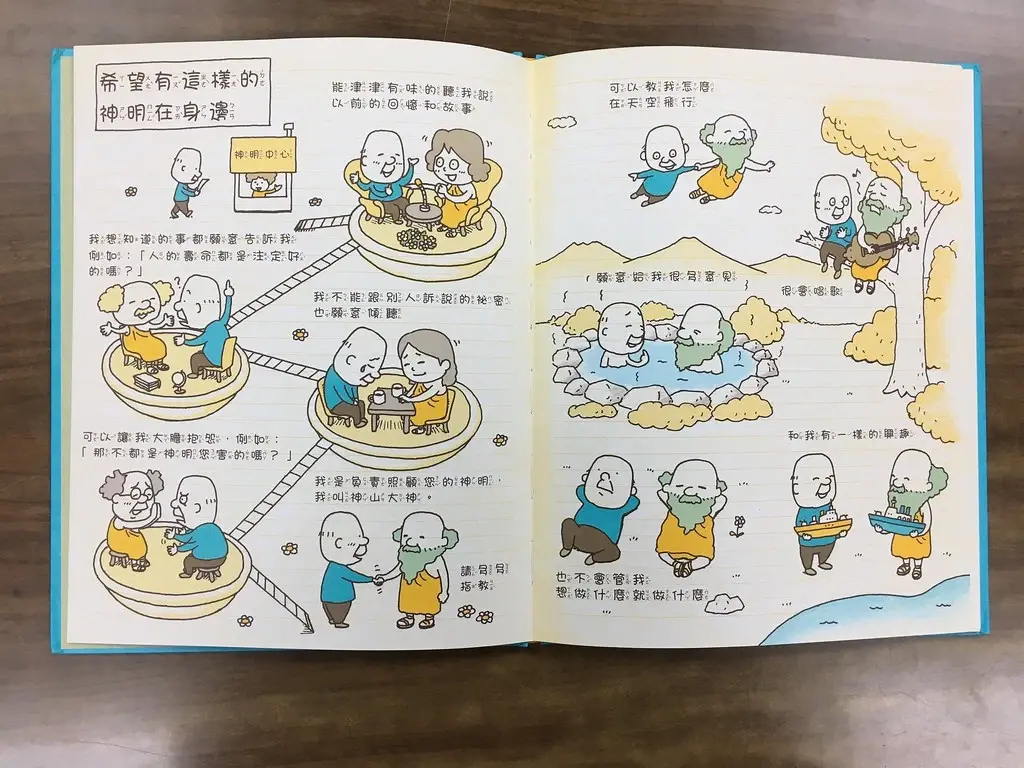 希望有這樣的
神明在身邊
神明中心
能津津有味的聽我說
以前的回憶和故事
我想知道的事都願意告訴我
例如：「人的壽命都是注定好
的嗎？」
我不能跟別人訴說的祕密
也願意傾聽
可以讓我大膽抱怨，例如：
「那不都是神明您害的嗎？」
我是負責照顧您的神明，
我叫神山大神。
請多多
指教
可以教我怎麼
在天空飛行
很會唱歌
願意給我很多意見
和我有一樣的興趣
也不會管我
想做什麼就做什麼